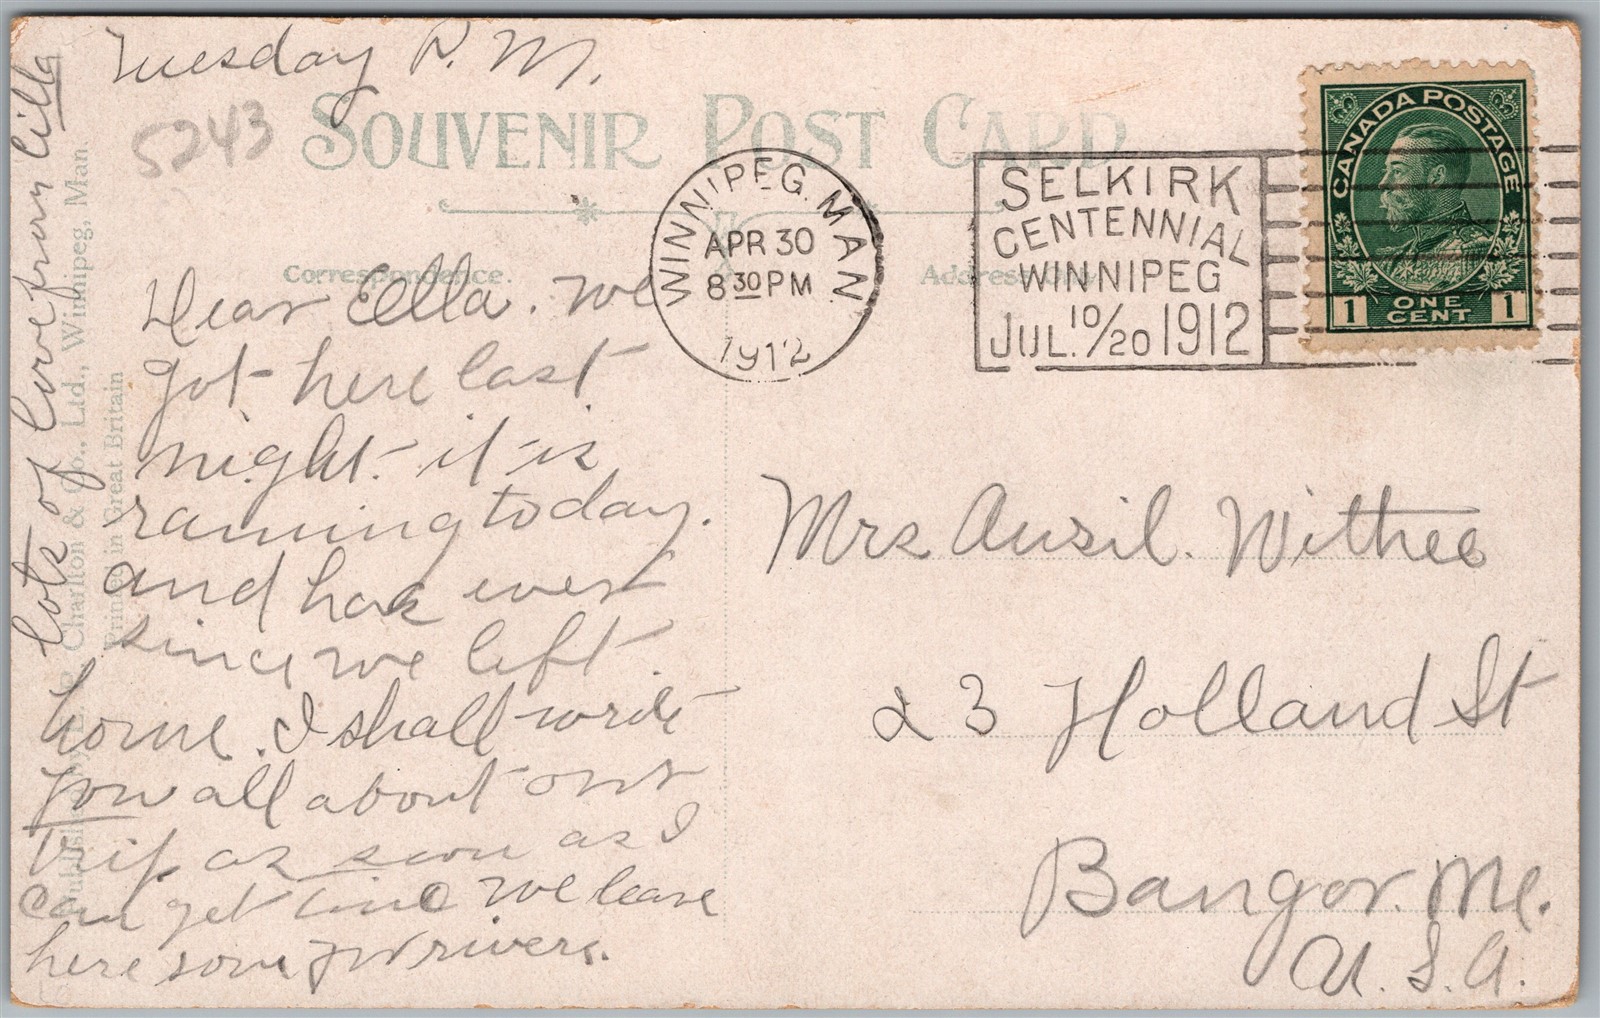 Tuesday P. M.
5243
SOUVENIR POST CARD
WINNIPEG. MAN
APR 30
8 30 PM
1912
SELKIRK
CENTENNIAL
WINNIPEG
JUL. 10/20 1912
CANADA POSTAGE
1 ONE CENT 1
Correspondence.
Address
Dear Ella. We
got here last
night. it is
raining today.
and has ever
since we left
home. I shall write
you all about our
trip as soon as I
can get time we leave
here
lots of love from Cilla
Charlton & Co., Ltd., Winnipeg, Man.
Printed in Great Britain
Mrs Ausil. Withee
23 Holland St
Bangor. Me.
U. S. A.